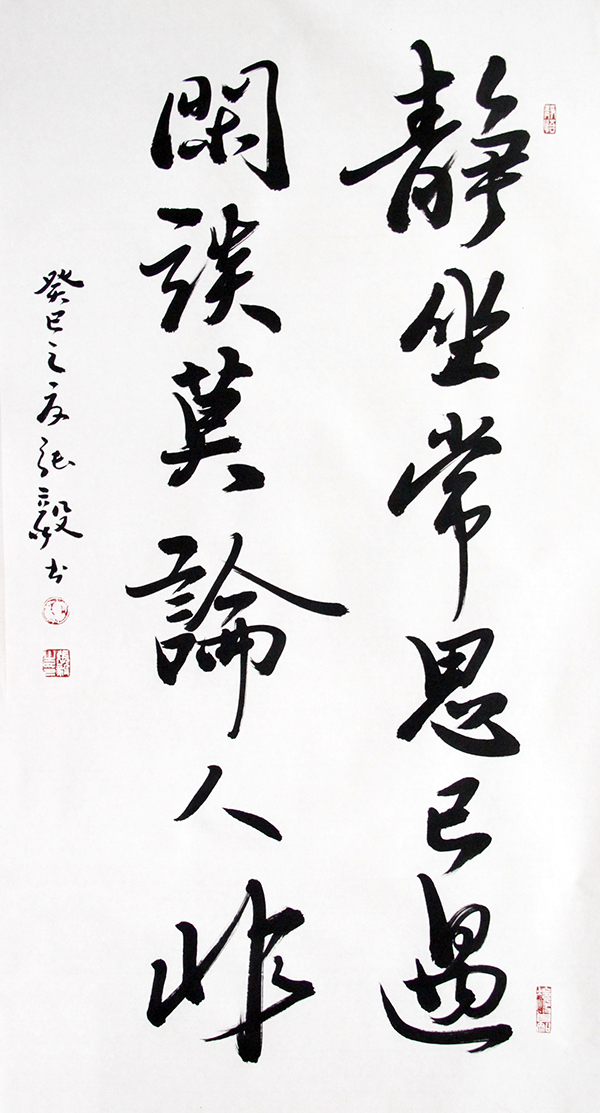 靜坐常思己過
閑談莫論人非
癸巳之夏張毅書